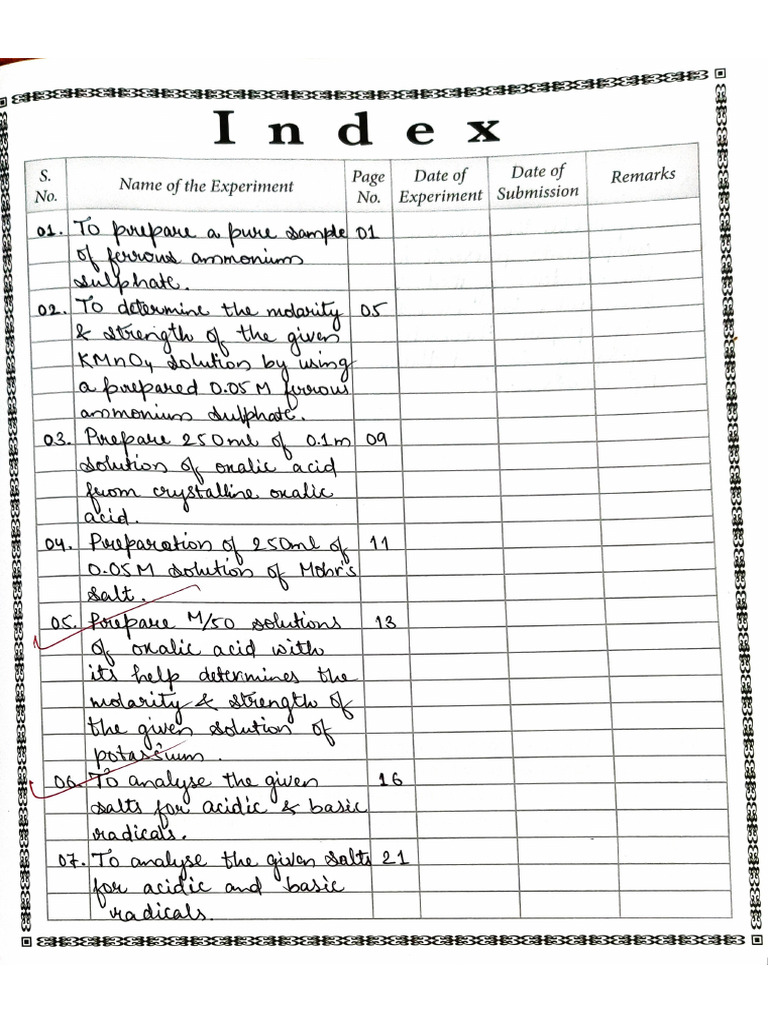 Index
S. No. Name of the Experiment Page No. Date of Experiment Date of Submission Remarks
01. To prepare a pure sample 01
of ferrous ammonium
sulphate.
02. To determine the molarity 05
& strength of the given
KMnO4 solution by using
a prepared 0.05 M ferrous
ammonium sulphate.
03. Prepare 250ml of 0.1m 09
solution of oxalic acid
from crystalline oxalic
acid.
04. Preparation of 250ml of 11
0.05M solution of Mohr's
salt.
05. Prepare M/50 solutions 13
of oxalic acid with
its help determines the
molarity & strength of
the given solution of
potassium.
06. To analyse the given 16
salts for acidic & basic
radicals.
07. To analyse the given salts 21
for acidic and basic
radicals.